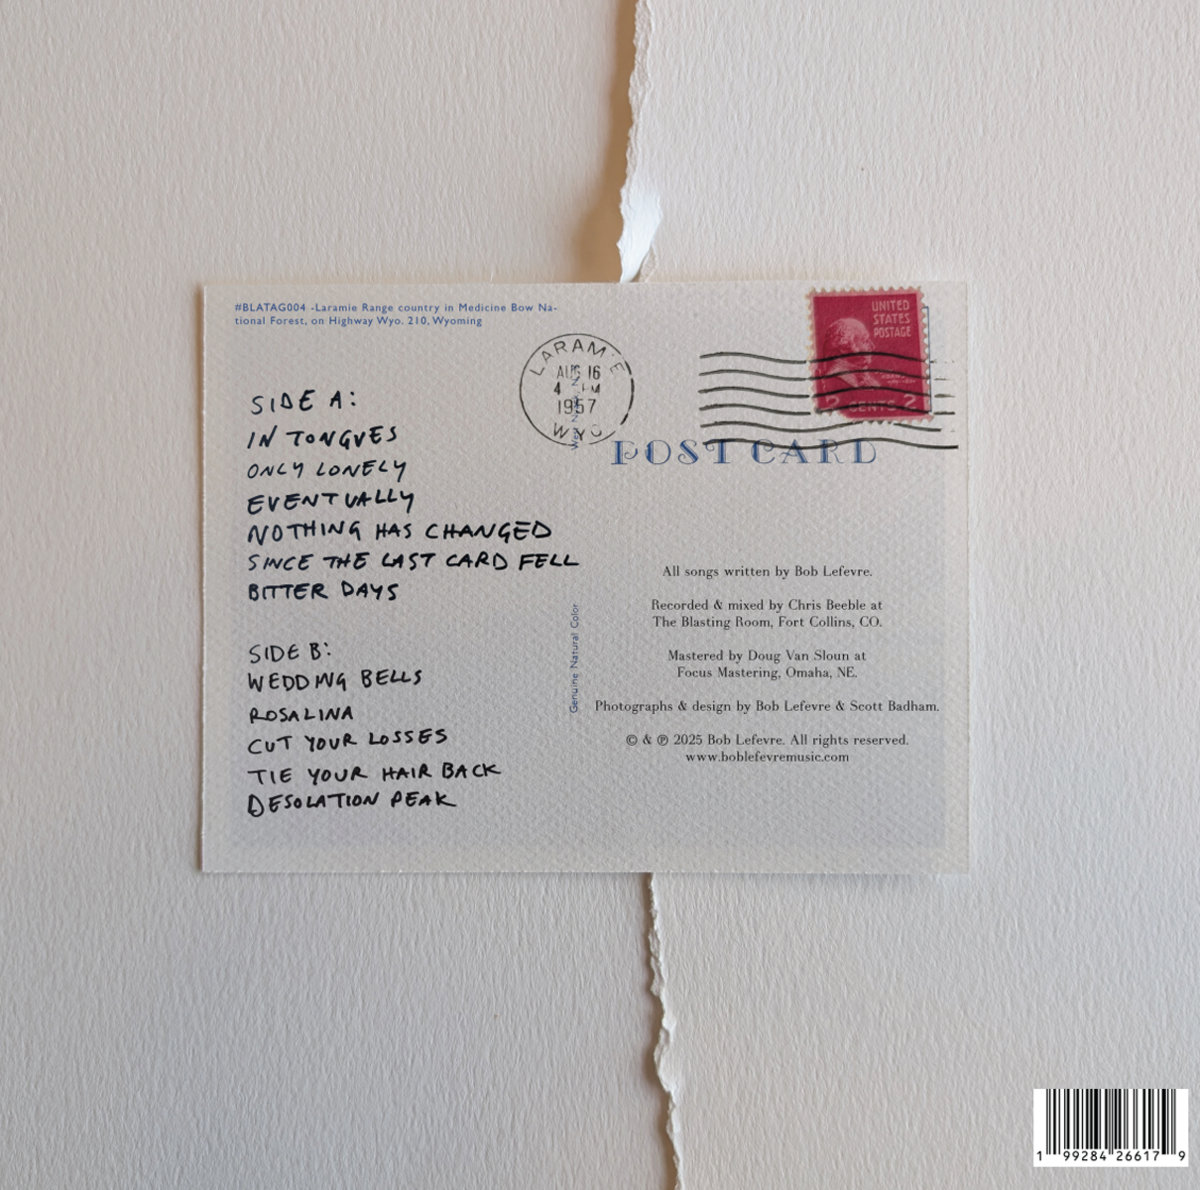 #BLATAG004 -Laramie Range country in Medicine Bow Na-
tional Forest, on Highway Wyo. 210, Wyoming
UNITED
STATES
POSTAGE
2 CENTS 2
LARAMIE
AUG 16
4 PM
1957
WYO
POST CARD
SIDE A:
IN TONGUES
ONLY LONELY
EVENTUALLY
NOTHING HAS CHANGED
SINCE THE LAST CARD FELL
BITTER DAYS
SIDE B:
WEDDING BELLS
ROSALINA
CUT YOUR LOSSES
TIE YOUR HAIR BACK
DESOLATION PEAK
Genuine Natural Color
All songs written by Bob Lefevre.
Recorded & mixed by Chris Beeble at
The Blasting Room, Fort Collins, CO.
Mastered by Doug Van Sloun at
Focus Mastering, Omaha, NE.
Photographs & design by Bob Lefevre & Scott Badham.
© & ℗ 2025 Bob Lefevre. All rights reserved.
www.boblefevremusic.com
1 99284 26617 9